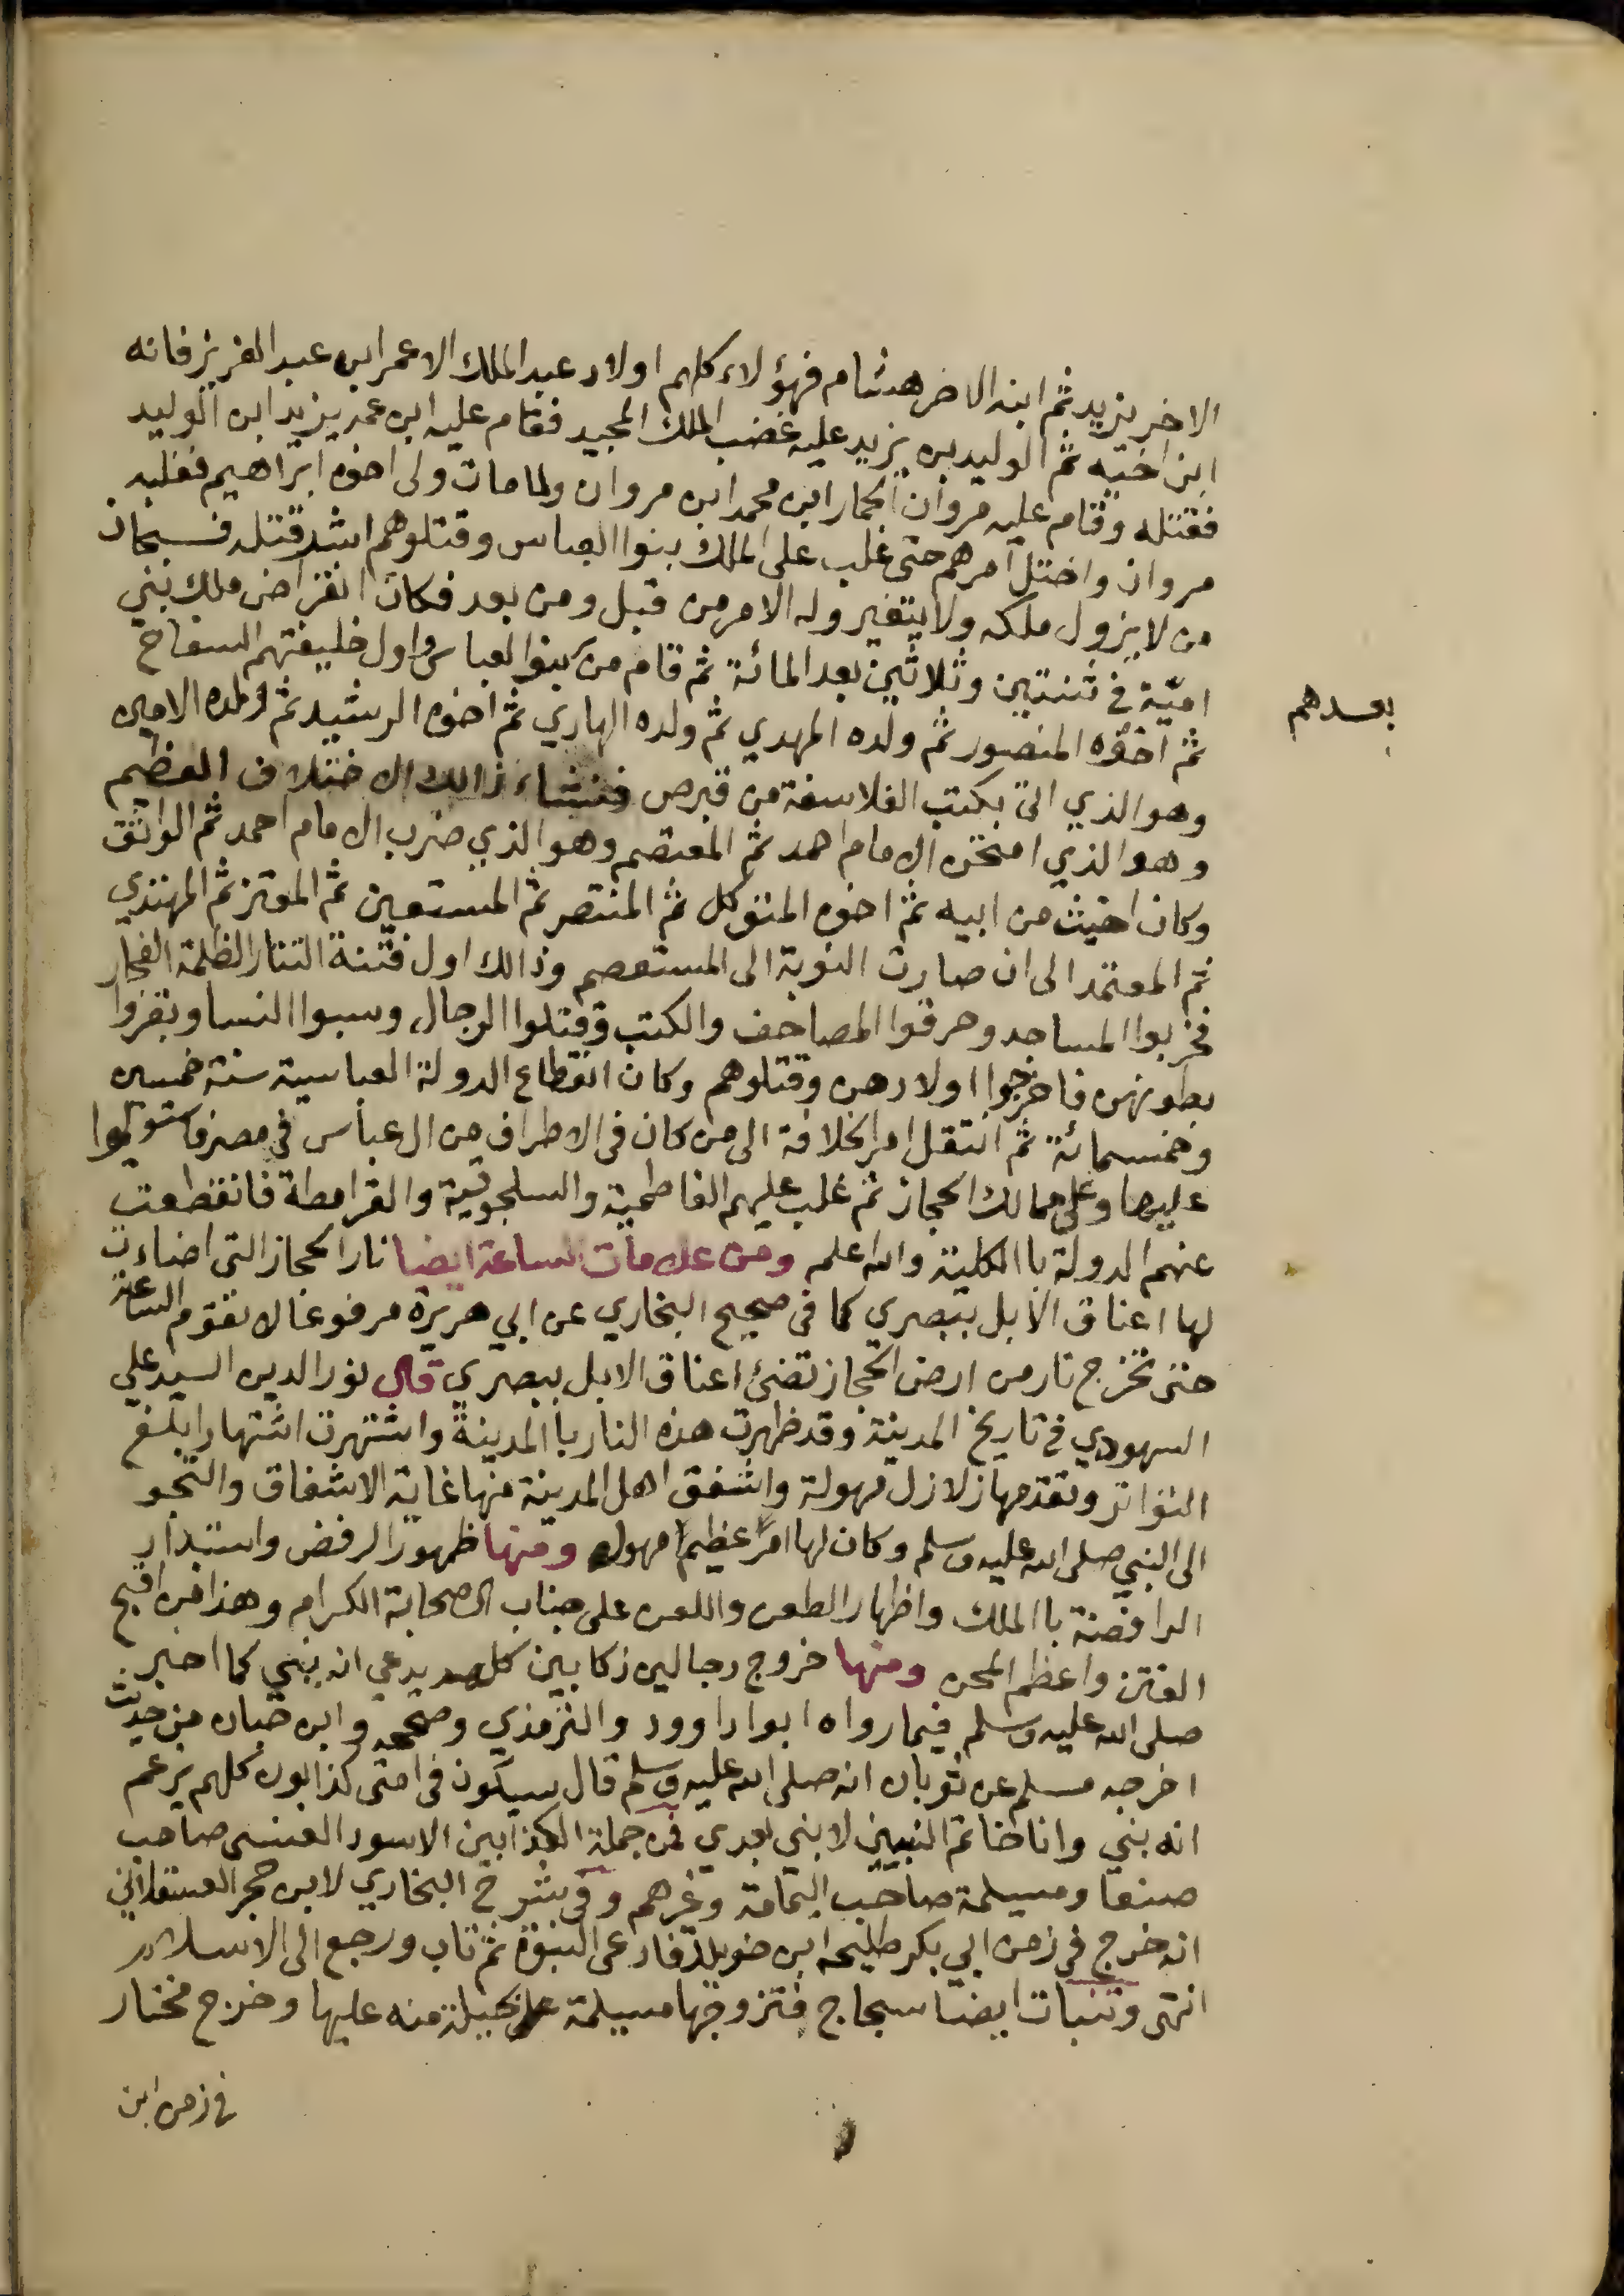 الاخر يزيد ثم ابنه الاخر هشام فهؤلاء كلهم اولاد عبد الملك الا عمر ابن عبد العزيز فانه
ابن اخيه ثم الوليد بن يزيد عليه غضب الملك المجيد فقام عليه ابن عمه يزيد ابن الوليد
فقتله وقام عليه مروان الحمار ابن محمد ابن مروان ولما مات ولى اخوه ابراهيم فغلبه
مروان واختل امرهم حتى غلب على الملك بنوا العباس وقتلوهم اشد قتلة فسبحان
من لا يزول ملكه ولا يتغير وله الامر من قبل ومن بعد فكان انقراض ملك بني
اميّة في ثنتين وثلاثين بعد المائة ثم قام من بنوا لعباس واول خليفتهم السفاح
بعدهم
ثم اخوه المنصور ثم ولده المهدي ثم ولده الهادي ثم اخوه الرشيد ثم ولده الامين
وهو الذي اتى بكتب الفلاسفة من قبرص فنشاء ذالك الاختلاف العظيم
وهو الذي امتحن الامام احمد ثم المعتصم وهو الذي ضرب الامام احمد ثم الواثق
وكان اخبث من ابيه ثم اخوه المتوكل ثم المنتصر ثم المستعين ثم المعتز ثم المهتدي
ثم المعتمد الى ان صارت النوبة الى المستعصم وذالك اول فتنة التتار الظلمة الفجار
فخربوا المساجد وحرقوا المصاحف والكتب وقتلوا الرجال وسبوا النسا وبقروا
بطونهن فاخرجوا اولادهن وقتلوهم وكان انقطاع الدولة العباسية سنة خمسين
وخمسمائة ثم انتقل امر الخلافة الى من كان فى الاطراف من ال عباس في مصر فاستولوا
عليها وعلى ممالك الحجاز ثم غلب عليهم الفاطمية والسلجوقية والقرامطة فانقطعت
عنهم الدولة با الكلية والله اعلم ومن علامات الساعة ايضا نار الحجاز التى اضاءت
لها اعناق الابل ببصري كما فى صحيح البخاري عن ابي هريرة مرفوعا لا تقوم الساعة
حتى تخرج نار من ارض الحجاز تضئ اعناق الابل ببصري قال نور الدين السيد علي
السهودي في تاريخ المدينة وقد ظهرت هذه النار با المدينة واشتهرت اشتهارا بلغ
التواتر وتقدمها زلازل مهولة واشفق اهل المدينة منها غاية الاشفاق والتجو
الى النبي صلى الله عليه وسلم وكان لها امرا عظيما مهولا ومنها ظهور الرفض واستبداد
الرافضة با الملك واظهار الطعن واللعن على جناب الصحابة الكرام وهذا من اقبح
الفتن واعظم المحن ومنها خروج دجالين زكابين كلهم يدعي انه نبي كما اخبر
صلى الله عليه وسلم فيما رواه ابوا داوود والترمذي وصححه وابن حبان من حديث
اخرجه مسلم عن ثوبان انه صلى الله عليه وسلم قال سيكون فى امتى كذابون كلهم يزعم
انه نبي وانا خاتم النبيين لا نبى بعدي فمن جملة الكذابين الاسود العنسى صاحب
صنعا ومسيلمة صاحب اليمامة وغرهم وفى شرح البخاري لابن حجر العسقلاني
انه خرج فى زمن ابي بكر طليحه ابن خويلد فادعى النبوة ثم تاب ورجع الى الاسلام
انتهى وتنبات ايضا سجاج فتزوجها مسيلمة على حيلة منه عليها وخرج مختار
في زمن ابن